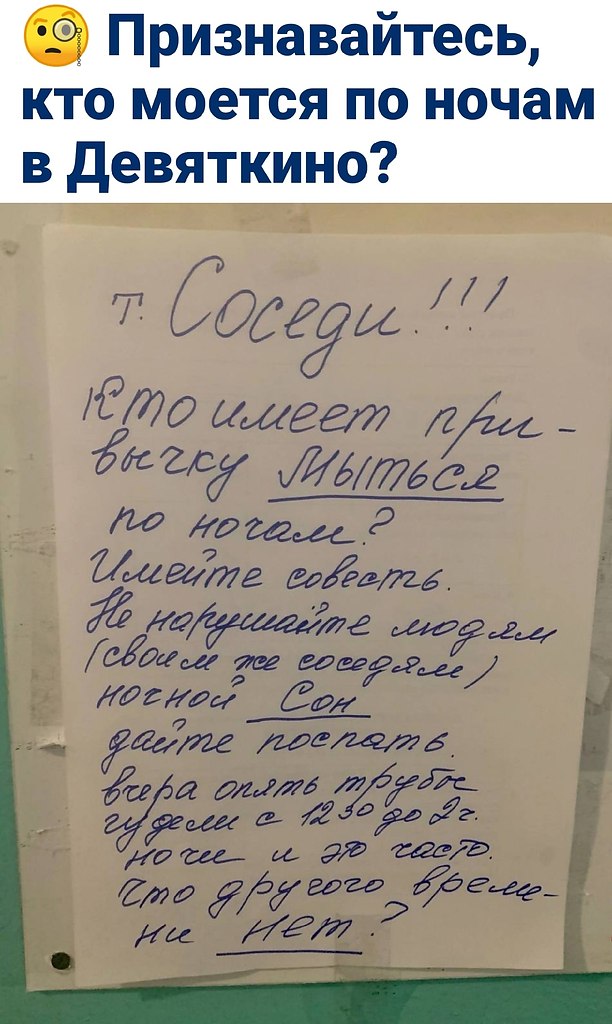 🧐 Признавайтесь,
кто моется по ночам
в Девяткино?
т. Соседи!!!
Кто имеет при-
вычку Мыться
по ночам?
Имейте совесть.
Не нарушайте людям
(своим же соседям)
ночной Сон
дайте поспать.
вчера опять трубы
гудели с 12 30 до 2 ч.
ночи и это часто.
Что другого време-
ни нет?